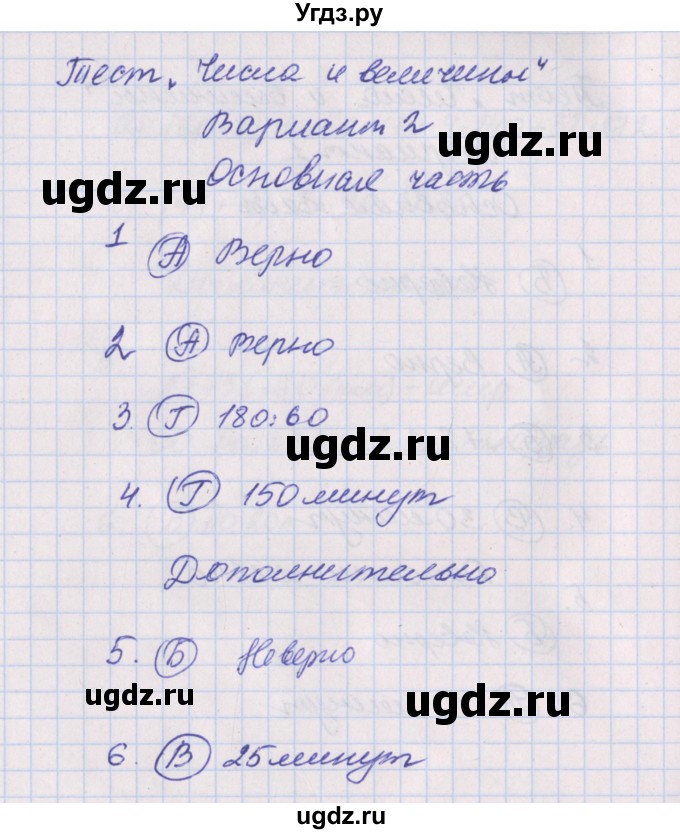 Угдз.ру
Тест „Числа и величины“
Вариант 2
ugdz.ru
ugdz.ru
Основная часть
1 А Верно
ugdz.ru
ugdz.ru
2 А Верно
3. Г 180:60
ugdz.ru
4. Г 150 минут
ugdz.ru
Дополнительно
5. Б Неверно
ugdz.ru
ugdz.ru
6. В 25 минут
ugdz.ru